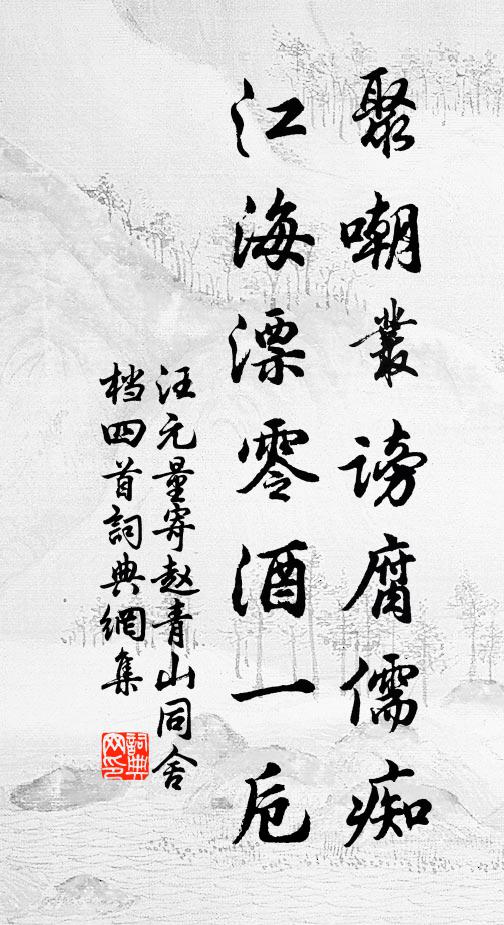 聚嘲叢謗腐儒痴
江海漂零酒一卮
汪元量寄赵青山同舍
档四首詞典網集
詞典网印